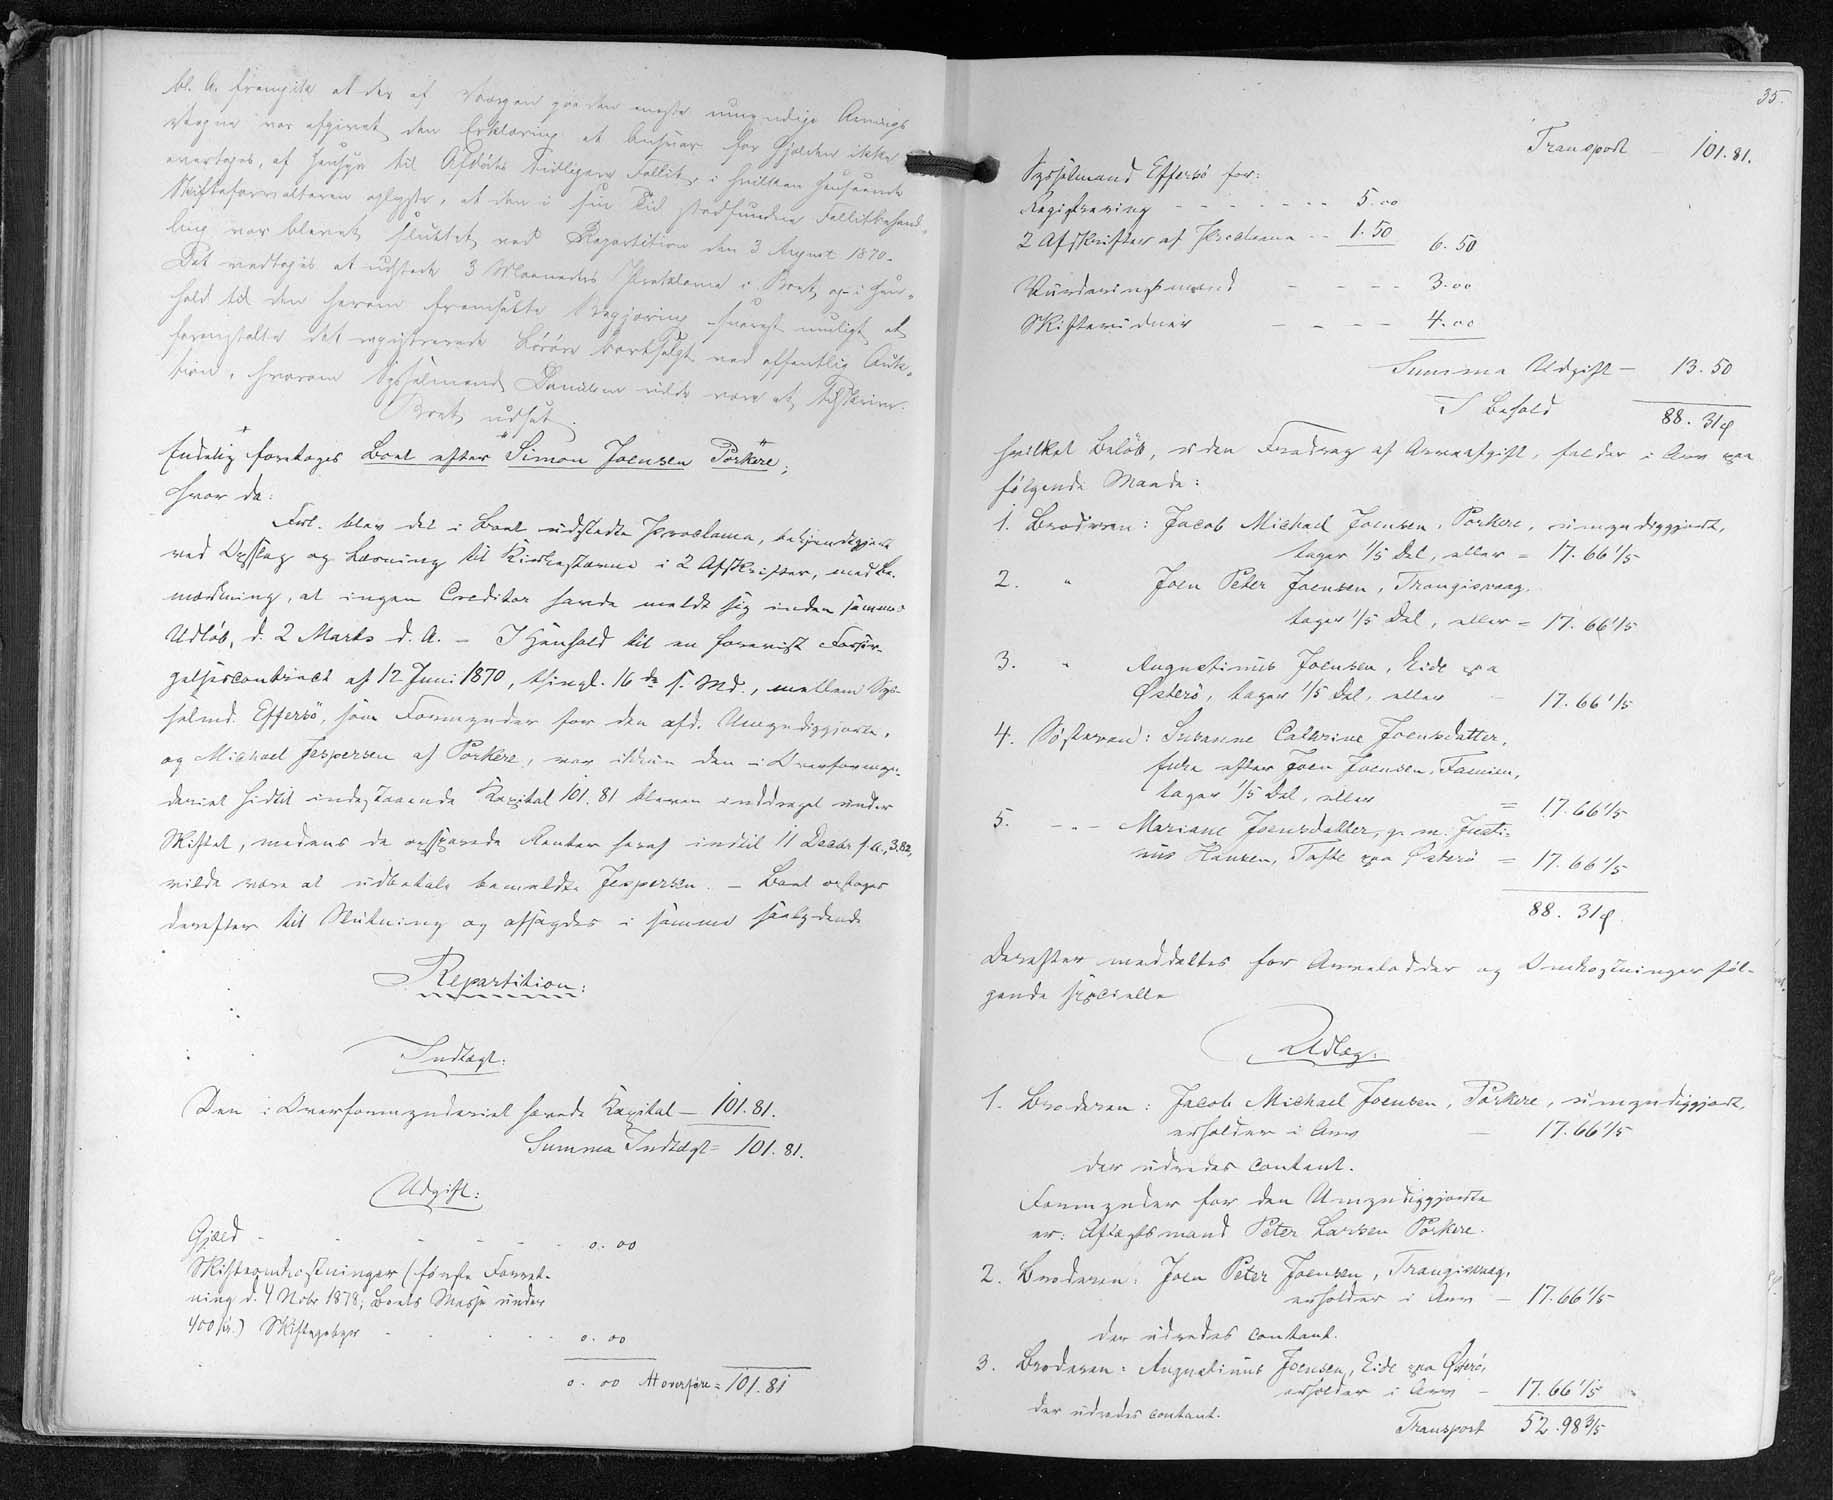 bl. A. fremgik at der af Værgen paa den eneste umyndige Arvings
Vegne var afgivet den Erklæring at Ansvar for Gjælden ikke
overtages, af Hensyn til Afdødes tidligere Fallit, i hvilken Henseende
Skifteforvalteren oplyste, at den i sin Tid stedfundne Fallitbehand-
ling var blevet sluttet ved Repartition den 3 August 1870.
Det vedtoges at udstede 3 Maaneders Proklama i Boet, og i Hen-
hold til den herom fremsatte Begjæring snarest muligt at
foranstalte det registrerede Løsøre bortsolgt ved offentlig Auk-
tion, hvorom Sysselmand Danielsen vilde være at tilskrive.
Boet udsat.
Endelig foretoges Boet efter Simon Joensen Porkere,
hvor da:
Fwl. blev det i Boet udstedte Proclama, bekjendtgjort
ved Opslag og Læsning til Kirkestævne i 2 Afskrifter, med Be-
mærkning, at ingen Creditor havde meldt sig inden sammes
Udløb, d. 2 Marts d. A. – I Henhold til en forevist Forsør-
gelsescontract af 12 Juni 1870, thingl. 16de s. Md., mellem Sys-
selmd. Effersö, som Formynder for den afd. Umyndiggjorte,
og Michael Jespersen af Porkere, var ikkun den i Overformyn-
deriet hidtil indestaaende Kapital 101.81 bleven inddraget under
Skiftet, medens de opsparede Renter heraf indtil 11 Decbr f. A., 3.82,
vilde være at udbetale bemeldte Jespersen. – Boet optoges
derefter til Slutning og afsagdes i samme saalydende
Repartition:
Indtægt:
Den i Overformynderiet havende Kapital – 101.81.
Summa Indtægt = 101.81.
Udgift:
Gjæld - - - - - 0.00
Skifteomkostninger (første Forret-
ning d. 4 Nobr 1878; Boets Masse under
400 Kr.) Skiftegebyr - - - - 0.00
0.00 At overføre = 101.81
35.
Transport – 101.81.
Sysselmand Effersö for:
Registrering - - - - - - - 5.00
2 Afskrifter af Proclama - - 1.50 6.50
Vurderingsmænd - - - - 3.00
Skiftevidner - - - - 4.00
Summa Udgift – 13.50
I Behold 88.31
hvilket Beløb, uden Fradrag af Arveafgift, falder i Arv paa
følgende Maade:
1. Broderen: Jacob Michael Joensen, Porkere, umyndiggjort,
tager 1/5 Del, eller = 17.66 1/5
2. " Joen Peter Joensen, Trangisvaag,
tager 1/5 Del, eller = 17.66 1/5
3. " Augustinus Joensen, Eide paa
Østerö, tager 1/5 Del, eller – 17.66 1/5
4. Søsteren: Susanne Cathrine Joensdatter,
Enke efter Joen Joensen, Famien,
tager 1/5 Del, eller = 17.66 1/5
5. - " - Mariane Joensdatter, g. m. Justi-
nus Hansen, Tofte paa Østerö = 17.66 1/5
88.31
Derefter meddeltes for Arvelodder og Omkostninger føl-
gende specielle
Udlæg:
1. Broderen: Jacob Michael Joensen, Porkere, umyndiggjort,
erholder i Arv – 17.66 1/5
der udredes contant.
Formynder for den Umyndiggjorte
er: Aftægtsmand Peter Larsen Porkere.
2. Broderen: Joen Peter Joensen, Trangisvaag,
erholder i Arv – 17.66 1/5
der udredes contant.
3. Broderen: Augustinus Joensen, Eide paa Østerö,
erholder i Arv – 17.66 1/5
der udredes contant.
Transport 52.98 3/5